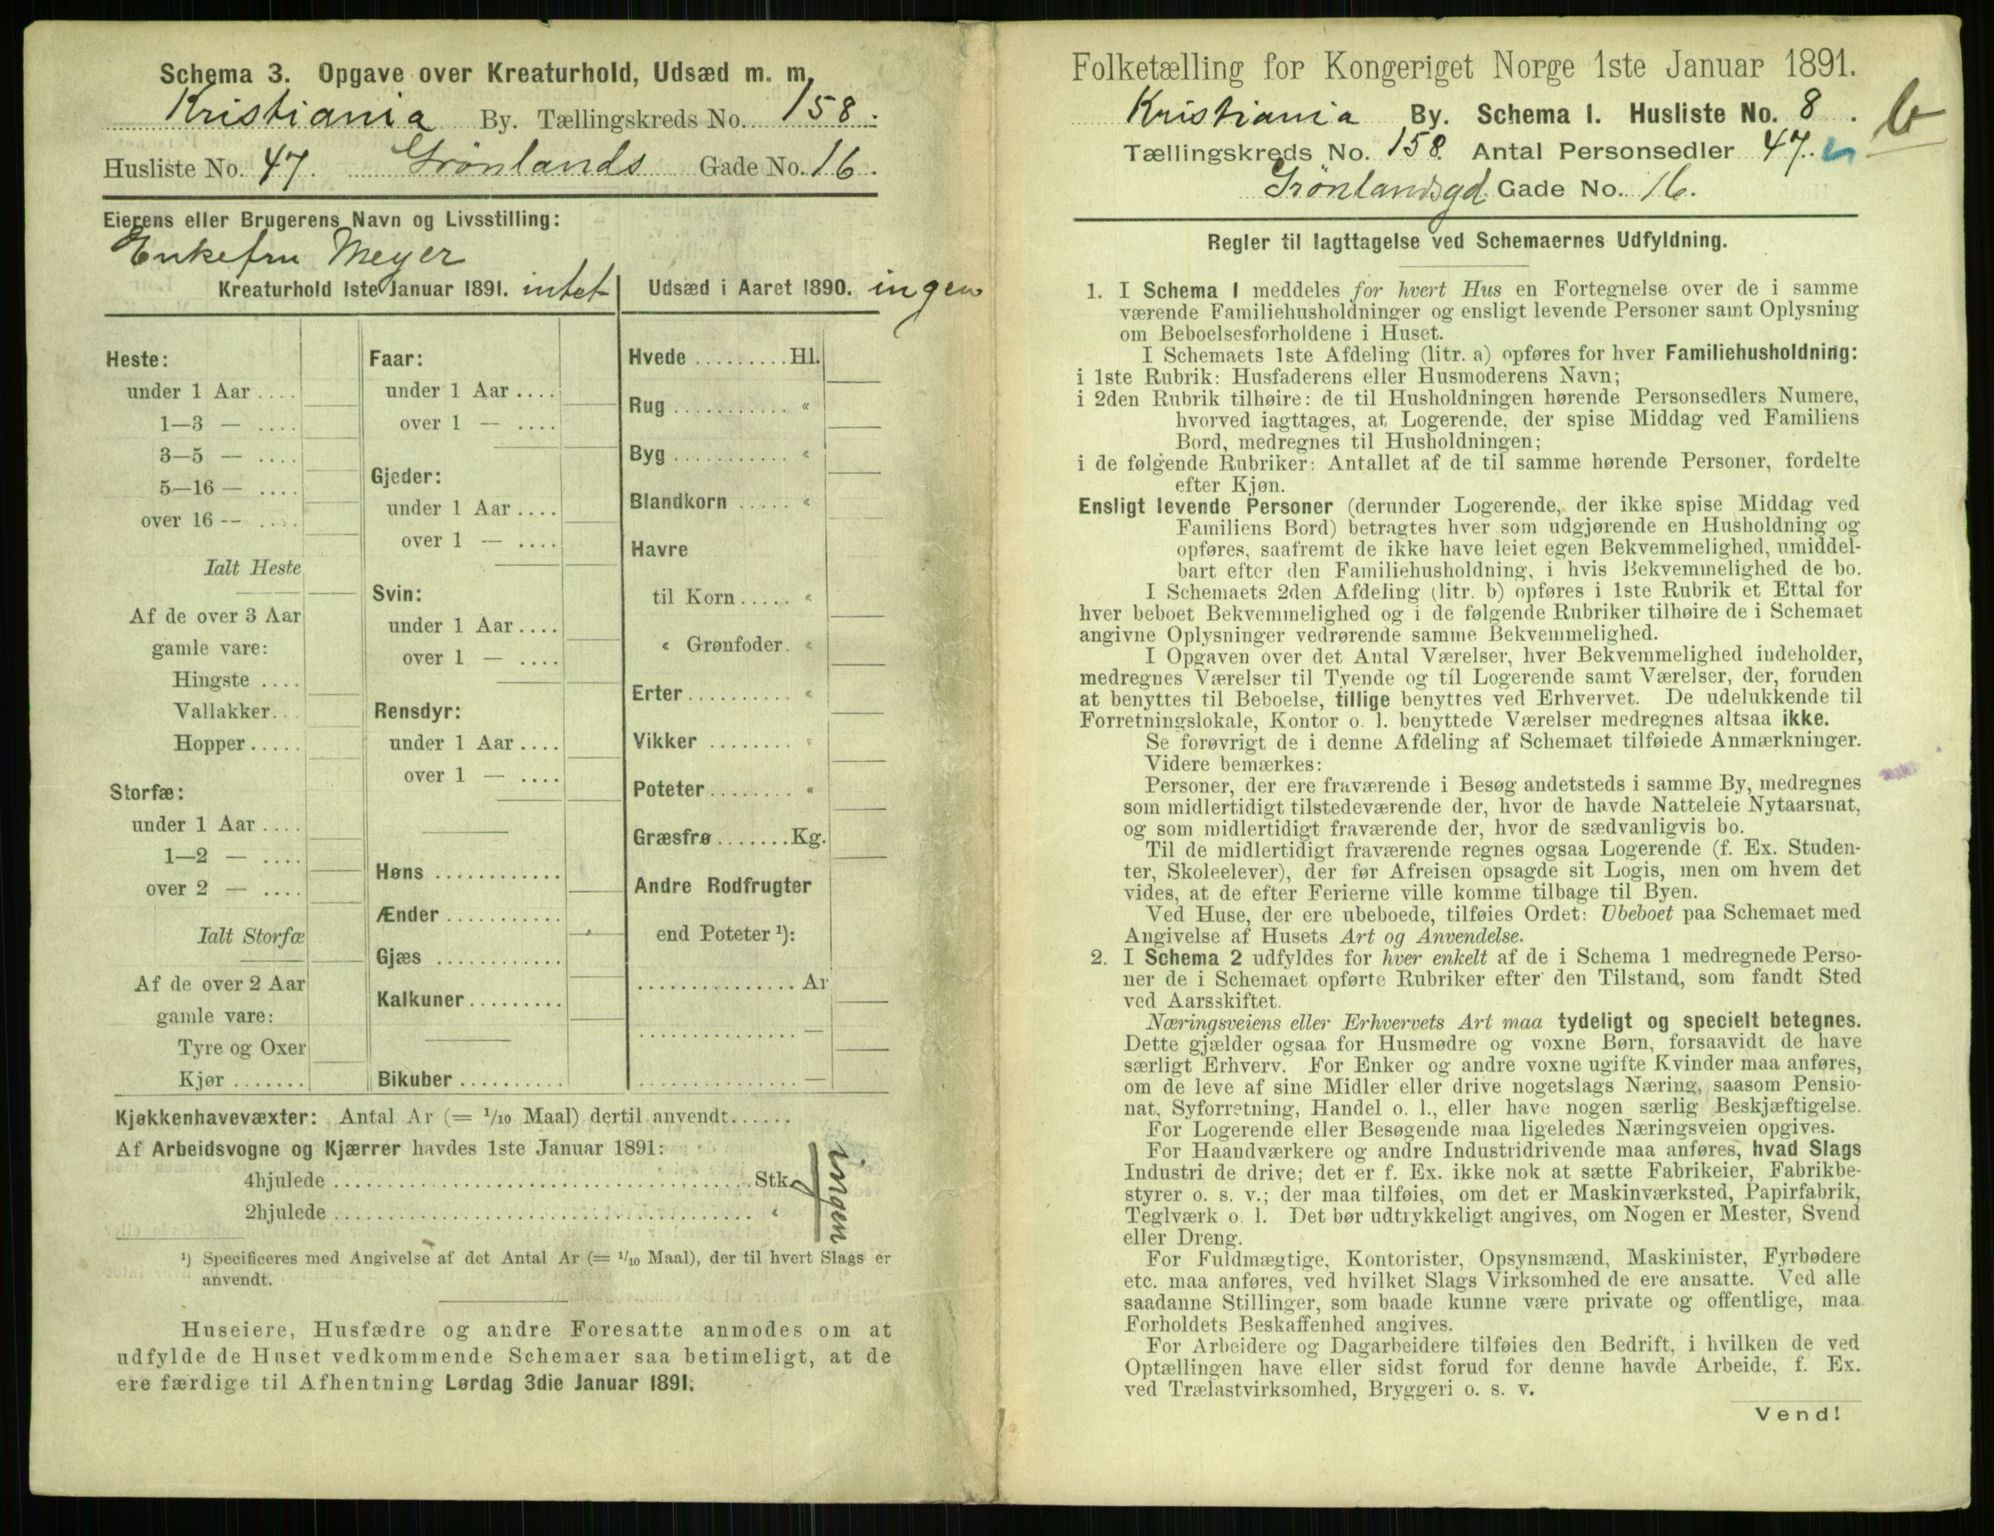 Schema 3. Opgave over Kreaturhold, Udsæd m. m.
Kristiania By. Tællingskreds No. 158.
Husliste No. 47. Grönlands Gade No. 16.
Eierens eller Brugerens Navn og Livsstilling:
Enkefru Meyer
Kreaturhold 1ste Januar 1891. intet
Heste:
under 1 Aar ....
1—3 — ....
3—5 — ....
5—16 — ....
over 16 — ....
Ialt Heste
Af de over 3 Aar
gamle vare:
Hingste ....
Vallakker...
Hopper.....
Storfæ:
under 1 Aar ....
1—2 — ....
over 2 — ....
Ialt Storfæ
Af de over 2 Aar
gamle vare:
Tyre og Oxer
Kjør .......
Faar:
under 1 Aar ....
over 1 — ....
Gjeder:
under 1 Aar ....
over 1 — ....
Svin:
under 1 Aar ....
over 1 — ....
Rensdyr:
under 1 Aar ....
over 1 — ....
Høns ............
Ænder ...........
Gjæs ............
Kalkuner.........
Bikuber ..........
Udsæd i Aaret 1890. ingen
Hvede .........Hl.
Rug ........... «
Byg ........... «
Blandkorn ..... «
Havre
til Korn..... «
« Grønfoder. «
Erter.......... «
Vikker ........ «
Poteter........ «
Græsfrø.......Kg.
Andre Rodfrugter
end Poteter ¹):
...............Ar
............... —
............... —
Kjøkkenhavevæxter: Antal Ar (= 1/10 Maal) dertil anvendt......
Af Arbeidsvogne og Kjærrer havdes 1ste Januar 1891:
4hjulede ........................................Stk.
2hjulede ........................................ «
ingen
¹) Specificeres med Angivelse af det Antal Ar (= 1/10 Maal), der til hvert Slags er
anvendt.
Huseiere, Husfædre og andre Foresatte anmodes om at
udfylde de Huset vedkommende Schemaer saa betimeligt, at de
ere færdige til Afhentning Lørdag 3die Januar 1891.
Folketælling for Kongeriget Norge 1ste Januar 1891.
Kristiania By. Schema 1. Husliste No. 8.
Tællingskreds No. 158. Antal Personsedler 47.
Grönlandsgd Gade No. 16.
Regler til Iagttagelse ved Schemaernes Udfyldning.
1. I Schema 1 meddeles for hvert Hus en Fortegnelse over de i samme
værende Familiehusholdninger og ensligt levende Personer samt Oplysning
om Beboelsesforholdene i Huset.
I Schemaets 1ste Afdeling (litr. a) opføres for hver Familiehusholdning:
i 1ste Rubrik: Husfaderens eller Husmoderens Navn;
i 2den Rubrik tilhøire: de til Husholdningen hørende Personsedlers Numere,
hvorved iagttages, at Logerende, der spise Middag ved Familiens
Bord, medregnes til Husholdningen;
i de følgende Rubriker: Antallet af de til samme hørende Personer, fordelte
efter Kjøn.
Ensligt levende Personer (derunder Logerende, der ikke spise Middag ved
Familiens Bord) betragtes hver som udgjørende en Husholdning og
opføres, saafremt de ikke have leiet egen Bekvemmelighed, umiddel-
bart efter den Familiehusholdning, i hvis Bekvemmelighed de bo.
I Schemaets 2den Afdeling (litr. b) opføres i 1ste Rubrik et Ettal for
hver beboet Bekvemmelighed og i de følgende Rubriker tilhøire de i Schemaet
angivne Oplysninger vedrørende samme Bekvemmelighed.
I Opgaven over det Antal Værelser, hver Bekvemmelighed indeholder,
medregnes Værelser til Tyende og til Logerende samt Værelser, der, foruden
at benyttes til Beboelse, tillige benyttes ved Erhvervet. De udelukkende til
Forretningslokale, Kontor o. l. benyttede Værelser medregnes altsaa ikke.
Se forøvrigt de i denne Afdeling af Schemaet tilføiede Anmærkninger.
Videre bemærkes:
Personer, der ere fraværende i Besøg andetsteds i samme By, medregnes
som midlertidigt tilstedeværende der, hvor de havde Natteleie Nytaarsnat,
og som midlertidigt fraværende der, hvor de sædvanligvis bo.
Til de midlertidigt fraværende regnes ogsaa Logerende (f. Ex. Studen-
ter, Skoleelever), der før Afreisen opsagde sit Logis, men om hvem det
vides, at de efter Ferierne ville komme tilbage til Byen.
Ved Huse, der ere ubeboede, tilføies Ordet: Ubeboet paa Schemaet med
Angivelse af Husets Art og Anvendelse.
2. I Schema 2 udfyldes for hver enkelt af de i Schema 1 medregnede Perso-
ner de i Schemaet opførte Rubriker efter den Tilstand, som fandt Sted
ved Aarsskiftet.
Næringsveiens eller Erhvervets Art maa tydeligt og specielt betegnes.
Dette gjælder ogsaa for Husmødre og voxne Børn, forsaavidt de have
særligt Erhverv. For Enker og andre voxne ugifte Kvinder maa anføres,
om de leve af sine Midler eller drive nogetslags Næring, saasom Pensio-
nat, Syforretning, Handel o. l., eller have nogen særlig Beskjæftigelse.
For Logerende eller Besøgende maa ligeledes Næringsveien opgives.
For Haandværkere og andre Industridrivende maa anføres, hvad Slags
Industri de drive; det er f. Ex. ikke nok at sætte Fabrikeier, Fabrikbe-
styrer o. s. v.; der maa tilføies, om det er Maskinværksted, Papirfabrik,
Teglværk o. l. Det bør udtrykkeligt angives, om Nogen er Mester, Svend
eller Dreng.
For Fuldmægtige, Kontorister, Opsynsmænd, Maskinister, Fyrbødere
etc. maa anføres, ved hvilket Slags Virksomhed de ere ansatte. Ved alle
saadanne Stillinger, som baade kunne være private og offentlige, maa
Forholdets Beskaffenhed angives.
For Arbeidere og Dagarbeidere tilføies den Bedrift, i hvilken de ved
Optællingen have eller sidst forud for denne havde Arbeide, f. Ex.
ved Trælastvirksomhed, Bryggeri o. s. v.
Vend!